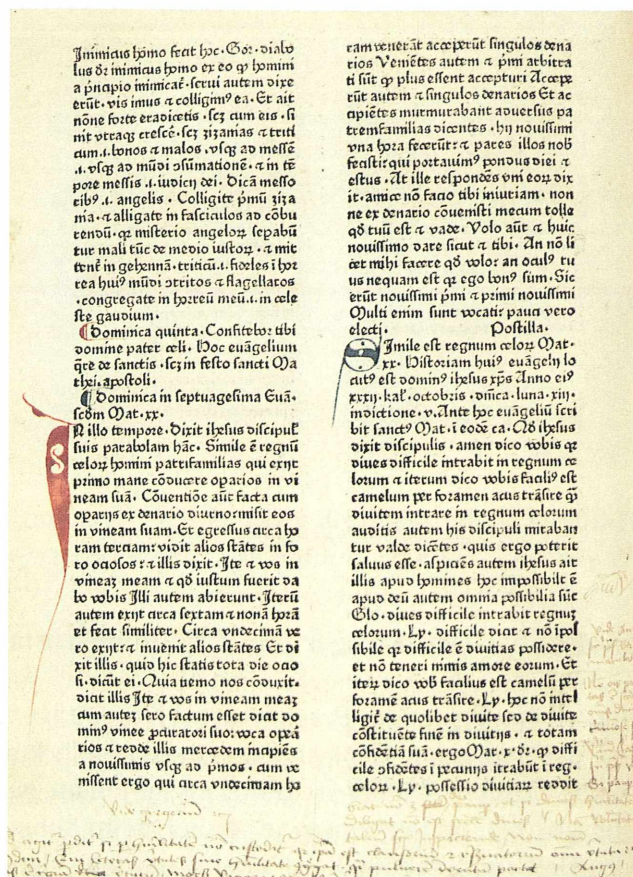 Inimicus homo fecit hoc. Glo. diabo
lus dr̄ inimicus homo ex eo ꝙ homini
a pͥncipio inimicat᷑. serui autem dixe
erūt. vis imus ⁊ colligimꝰ ea. Et ait
nōne forte eradicetis. scꝫ cum eis. si
nit vtraqꝫ crescē. scꝫ zizanias ⁊ triti
cum .i. bonos ⁊ malos. vsqꝫ ad messē
.i. vsqꝫ ad mūdi ↄsūmationē. ⁊ in tē
pore messis .i. iudicij dei. Dicā messo
ribꝰ .i. angelis . Colligite pͥmū ziza
nia. ⁊ alligate in fasciculos ad cōbu
rendū. qꝛ misterio angeloꝝ sepabū
tur mali tūc de medio iustoꝝ. ⁊ mit
tent᷑ in gehennā. triticū .i. fideles ī hor
rea huiꝰ mūdi ↄtritos ⁊ flagellatos
.congregate in horreū meū .i. in cele
ste gaudium.
Dominica quinta. Confitebor tibi
domine pater celi. Hoc euāgelium
q̄re de sanctis. scꝫ in festo sancti Ma
thei. apostoli.
Dominica in septuagesima Euā.
scd̄m Mat. xx.
IN illo tempore. Dixit ihesus discipul᷑
suis parabolam hāc. Simile ē regnū
celoꝝ homini patrifamilias qui exijt
primo mane cōducere oparios in vi
neam suā. Cōuentiōe aūt facta cum
oparijs ex denario diurno misit eos
in vineam suam. Et egressus circa ho
ram terciam: vidit alios stātes in fo
ro ociosos: ⁊ illis dixit. Ite ⁊ vos in
vineaꝫ meam ⁊ qd̄ iustum fuerit da
bo vobis Illi autem abierunt. Iterū
autem exijt circa sextam ⁊ nonā horā
et fecit similiter. Circa vndecimā ve
ro exijt: ⁊ inuenit alios stātes Et di
xit illis. quid hic statis tota die ocio
si. dicūt ei. Quia nemo nos cōduxit.
dicit illis Ite ⁊ vos in vineam meaꝫ
cum auteꝫ sero factum esset dicit do
minꝰ vinee ꝓcuratori suo: voca opa
rios ⁊ redde illis mercedem incipiēs
a nouissimis vsqꝫ ad pͥmos. cum ve
nissent ergo qui circa vndecimam ho
ram venerāt acceperūt singulos dena
rios Veniētes autem ⁊ pͥmi arbitra
ti sūt ꝙ plus essent accepturi Accepe
rūt autem ⁊ singulos denarios Et ac
cipiētes murmurabant aduersus pa
tremfamilias dicentes. hij nouissimi
vna hora fecerūt: ⁊ pares illos nob᷑
fecisti: qui portauimꝰ pondus diei ⁊
estus. At ille respondēs vni eoꝝ dix
it. amice nō facio tibi iniuriam. non
ne ex denario cōuenisti mecum tolle
qd̄ tuū est ⁊ vade. Volo aūt ⁊ huic
nouissimo dare sicut ⁊ tibi. An nō li
cet mihi facere qd̄ volo: an oculꝰ tu
us nequam est qꝛ ego bonꝰ sum. Sic
erūt nouissimi pͥmi ⁊ primi nouissimi
Multi enim sunt vocati: pauci vero
electi. Postilla.
Simile est regnum celoꝝ Mat.
xx. Historiam huiꝰ euāgelij lo
cutꝰ est dominꝰ ihesus xp̄s Anno eiꝰ
xxxij. kal᷑. octobris. dn̄ica. luna. xij.
indictione. v. Ante hoc euāgeliū scri
bit sanctꝰ Mat. ī eodē ca. Qd̄ ihesus
dixit discipulis . amen dico vobis qꝛ
diues difficile intrabit in regnum ce
lorum ⁊ iterum dico vobis faciliꝰ est
camelum per foramen acus trāsire ꝙ̄
diuitem intrare in regnum celorum
auditis autem his discipuli miraban
tur valde dicētes. quis ergo poterit
saluus esse. aspiciēs autem ihesus ait
illis apud homines hoc impossibile ē
apud deū autem omnia possibilia sūt
Glo. diues difficile intrabit regnuꝫ
celorum. Ly. difficile dicit ⁊ nō īpos
sibile qꝛ difficile ē diuitias possidere.
et nō teneri nimis amore eorum. Et
iteꝝ dico vob᷑ facilius est camelū per
foramē acus trāsire. Ly. hoc nō intel
ligit᷑ de quolibet diuite sed de diuite
cōstituēte finē in diuitijs . ⁊ totam
cōfidētiā suā. ergo Mat. x. dr̄. ꝙ diffi
cile ↄfidētes ī pecunijs ītrabūt ī reg.
celoꝝ. Ly. possessio diuitiaꝝ reddit